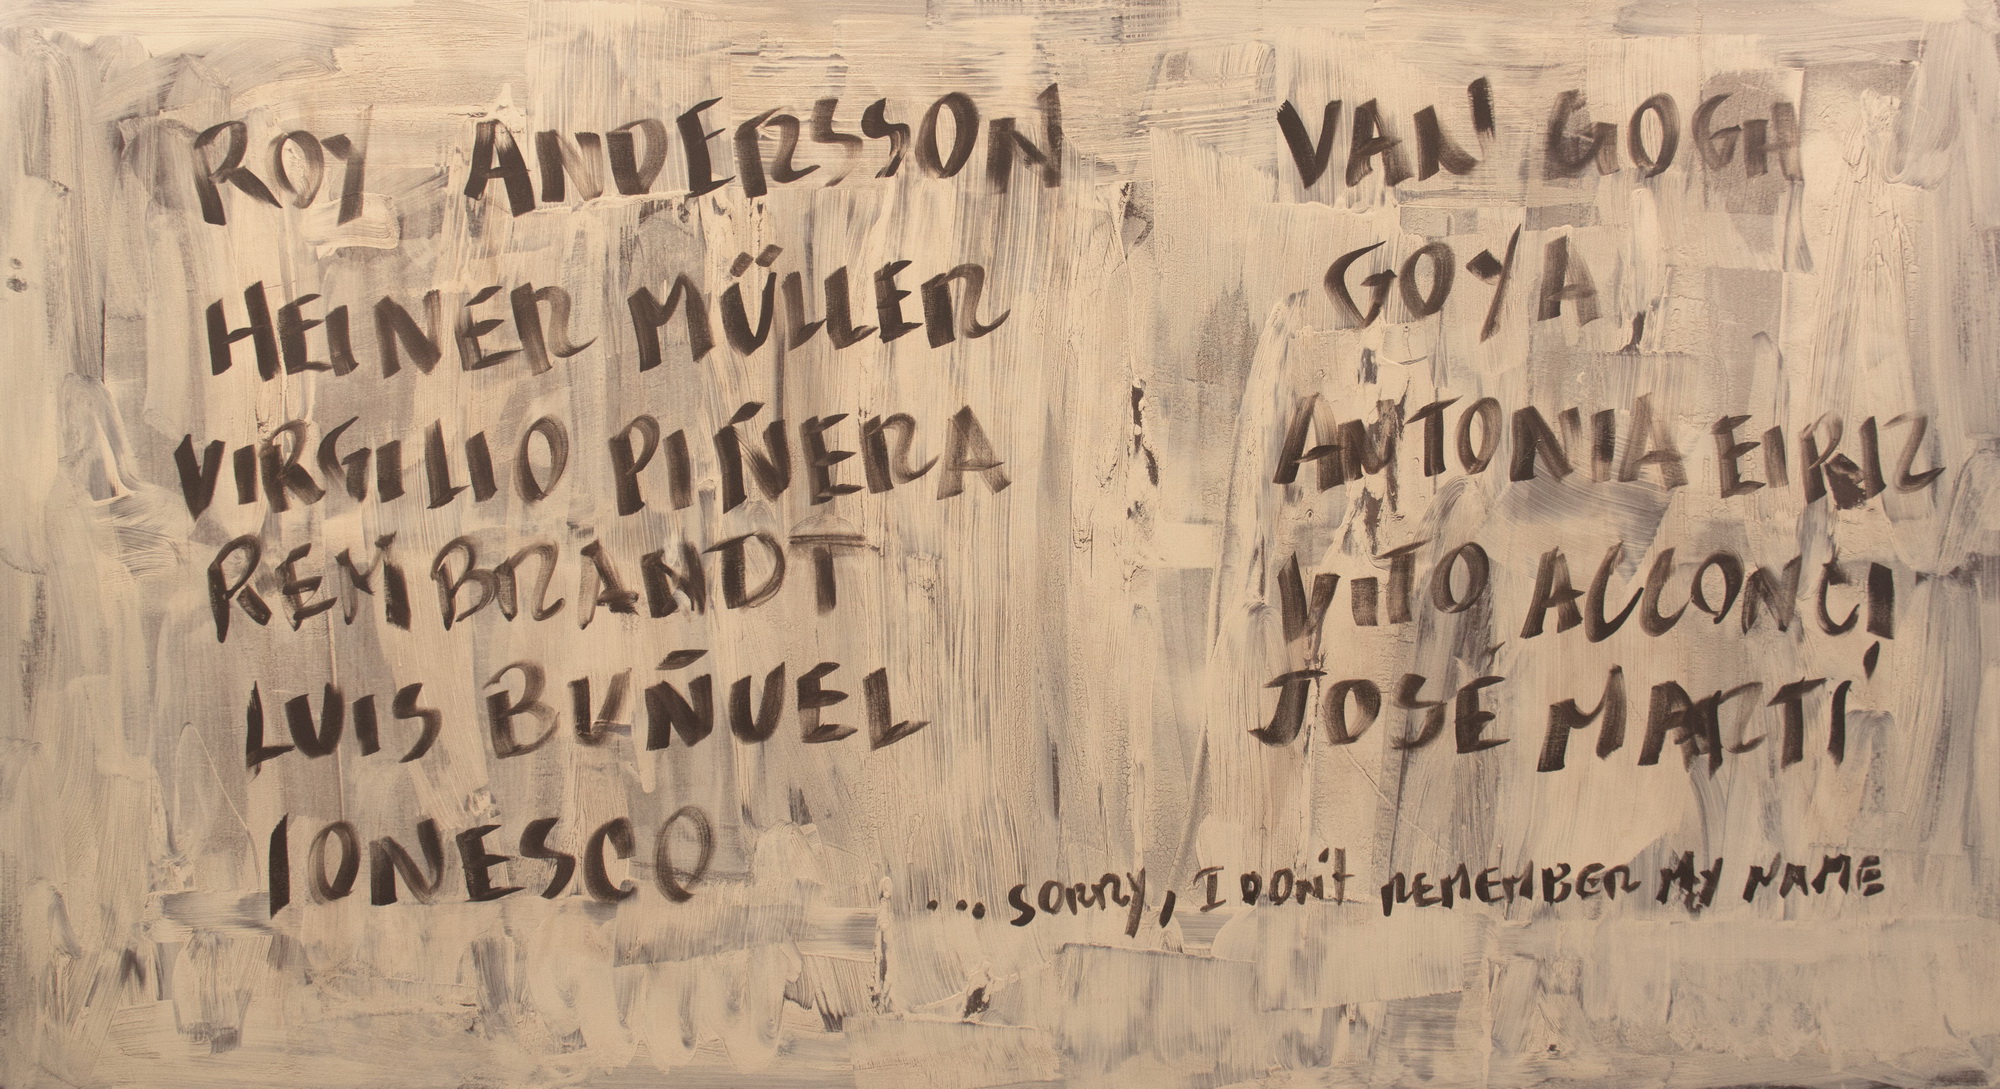 ROY ANDERSSON
HEINER MÜLLER
VIRGILIO PIÑERA
REMBRANDT
LUIS BUÑUEL
IONESCO
VAN GOGH
GOYA,
ANTONIA EIRIZ
VITO ACCONCI
JOSÉ MARTÍ
...SORRY, I DON'T REMEMBER MY NAME